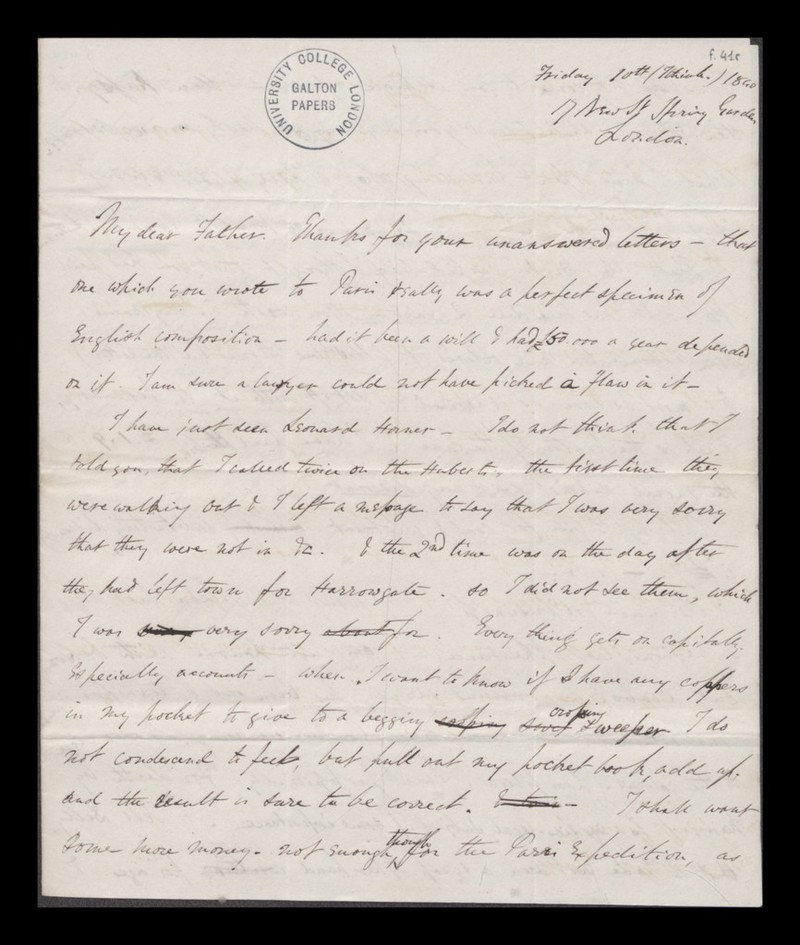 f. 41r
UNIVERSITY COLLEGE LONDON
GALTON
PAPERS
Friday 10th (Mich.) 1840
17 New St Spring Garden
London.
My dear Father. Thanks for your unanswered letters – that
one which you wrote to Paris really was a perfect specimen of
English composition – had it been a will & had £50.000 a year depended
on it. I am sure a lawyer could not have picked a flaw in it –
I have just seen Leonard Horner – I do not think that I
told you, that I called twice on the Huberts, the first time they
were walking out & I left a message to say that I was very sorry
that they were not in &c. & the 2nd time was on the day after
they had left town for Harrowgate. so I did not see them, which
I was very sorry about for. Every thing gets on capitally.
Especially accounts – when I want to know if I have any coppers
in my pocket to give to a begging crossing sweeper I do
not condescend to feel, but pull out my pocket book, add up.
and the result is sure to be correct. I shall want
some more money – not enough though for the Paris Expedition, as